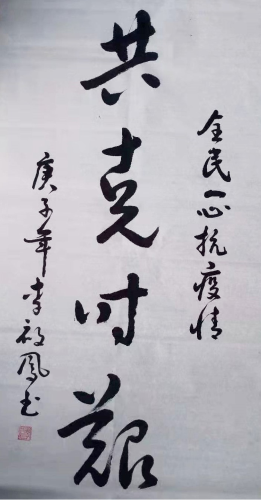 全民一心抗疫情
共克时艰
庚子年李祖凤书